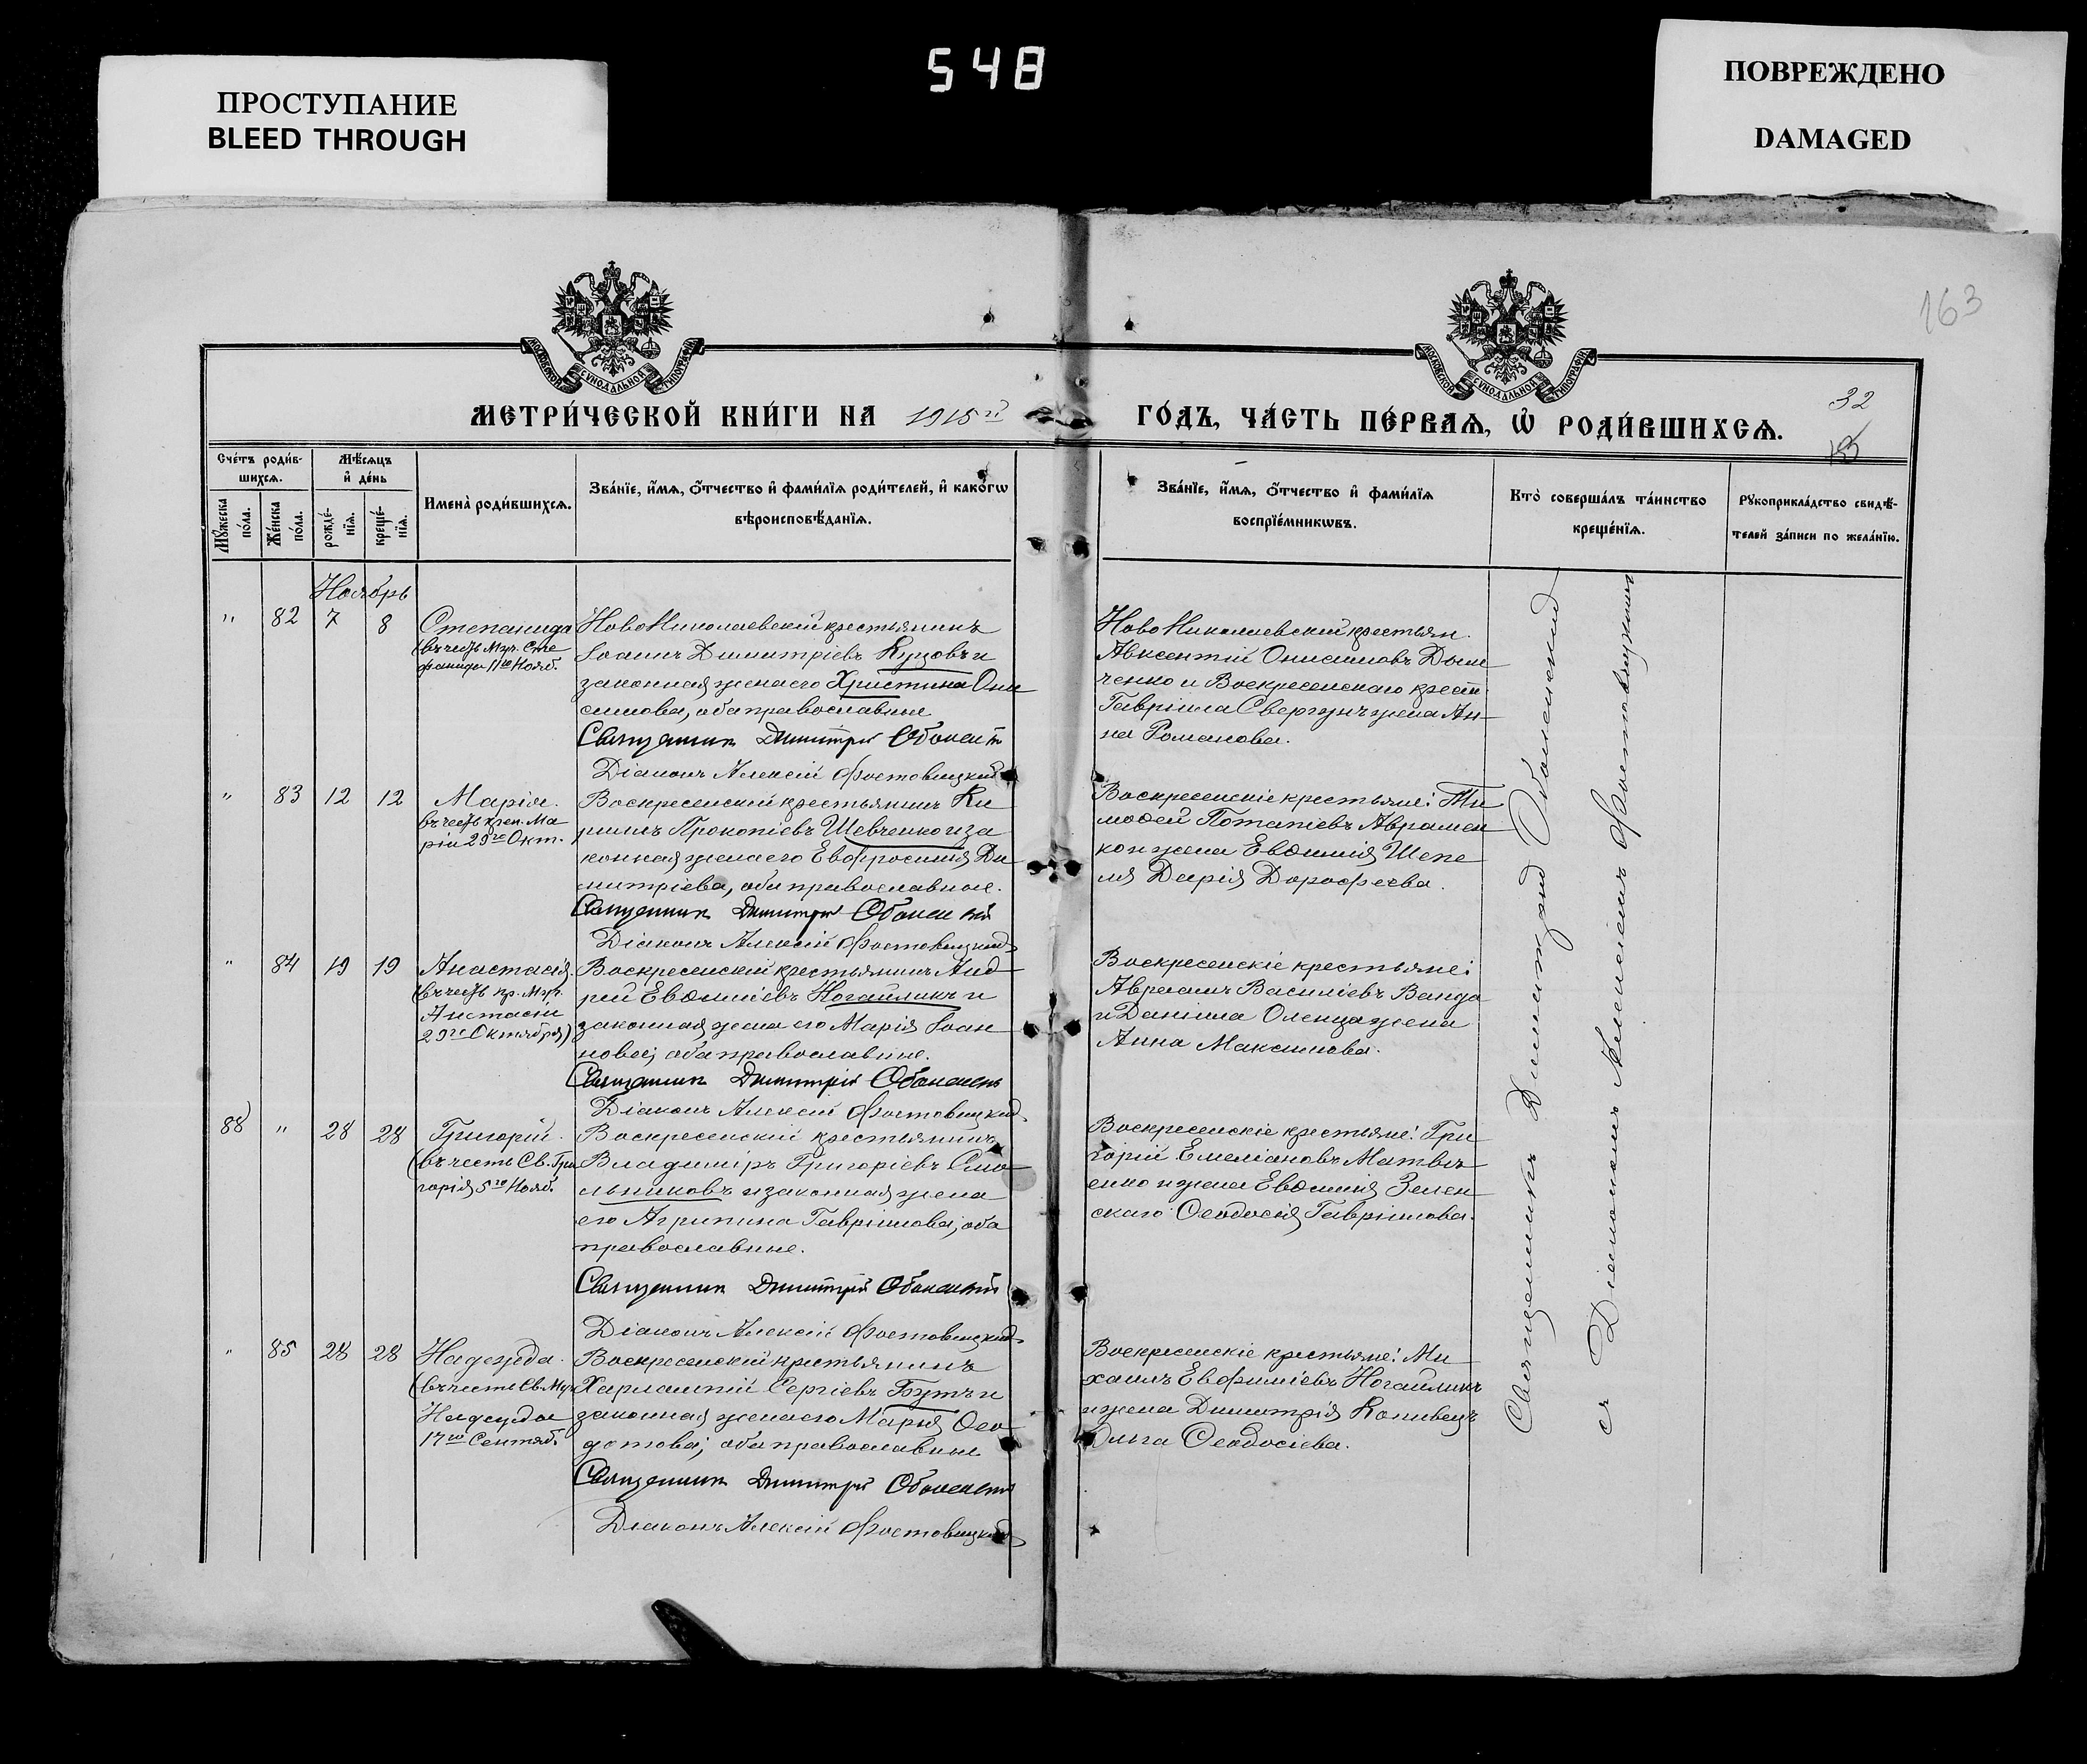 548
ПРОСТУПАНИЕ
BLEED THROUGH
ПОВРЕЖДЕНО
DAMAGED
163
МОСКОВСКОЙ СѴНОДАЛЬНОЙ ТИПОГРАФІИ
МОСКОВСКОЙ СѴНОДАЛЬНОЙ ТИПОГРАФІИ
МЕТРИ́ЧЕСКОЙ КНИ́ГИ НА 1915й
ГО́ДЪ, ЧА́СТЬ ПЕ́РВАѦ, Ѡ҆ РОДИ́ВШИХСѦ.
32
Сче́тъ роди́в-
шихсѧ.
Мѣ́сѧцъ
и҆ де́нь
Мꙋ́жеска
по́ла.
Же́нска
по́ла.
рожде́-
нїѧ.
креще́-
нїѧ.
Имена̀ роди́вшихсѧ.
Зва́нїе, и҆́мѧ, ѻ҆́тчество и҆ фами́лїѧ роди́телей, и҆ како́гѡ
вѣроисповѣ́данїѧ.
Зва́нїе, и҆́мѧ, ѻ҆́тчество и҆ фами́лїѧ
воспрїе́мникѡвъ.
Кто̀ соверша́лъ та́инство
креще́нїѧ.
Рꙋкоприкла́дство свидѣ́-
телей за́писи по жела́нїю.
Ноябрь
" 82 7 8
Степанида
(въ честь Муч. Сте
фаниды 11го Нояб.
НовоНиколаевскій крестьянинъ
Іоаннъ Димитріевъ Купцовъ и
законная жена его Христина Они
симова, оба православные
Священникъ Димитрій Оболенскій
Діаконъ Алексій Фостовицкій
НовоНиколаевскій крестьян.
Авксентій Онисимовъ Дьяч
ченко и Воскресенскаго крест.
Гавріила Свергунъ жена Ан
на Романова.
" 83 12 12
Марія.
въ честь преп. Ма
ріи 29го Окт.
Воскресенскій крестьянинъ Ки
риллъ Прокопіевъ Шевченко и за
конная жена его Евфросинія Ди
митріева, оба православные.
Священникъ Димитрій Оболенскій
Діаконъ Алексій Фостовицкій
Воскресенскіе крестьяне: Ти
мофей Потапіевъ Авраменко
ко и жена Евѳимія Шепе
ля Дарія Дороѳеева.
" 84 19 19
Анастасія.
(въ честь пр. Муч.
Анастасіи
29го Октября)
Воскресенскій крестьянинъ Анд
рей Евѳиміевъ Ногайликъ и
законная жена его Марія Іоан
нова, оба православные.
Священникъ Димитрій Оболенскій
Діаконъ Алексій Фостовицкій
Воскресенскіе крестьяне:
Авраамъ Василіевъ Ванда
и Даніила Оленца жена
Анна Максимова.
88 " 28 28
Григорій.
(въ честь Св. Гри
горія 5го Нояб.
Воскресенскій крестьянинъ
Владиміръ Григоріевъ Смо
льниковъ и законная жена
его Агрипина Гавріилова, оба
православные.
Священникъ Димитрій Оболенскій
Діаконъ Алексій Фостовицкій
Воскресенскіе крестьяне: Гри
горій Емеліановъ Матвѣ
енко и жена Евѳимія Зелен
скаго Ѳеодосія Гавріилова.
" 85 28 28
Надежда.
(въ честь Св. Муч
Надежды
17го Сентяб.
Воскресенскій крестьянинъ
Харлампій Сергіевъ Бутъ и
законная жена его Марія Ѳео
дотова, оба православные
Священникъ Димитрій Оболенскій
Діаконъ Алексій Фостовицкій
Воскресенскіе крестьяне: Ми
хаилъ Евфиміевъ Ногайликъ
и жена Димитрія Копивецъ
Ольга Ѳеодосіева.
Священникъ Димитрій Оболенскій
съ Діакономъ Алексіемъ Фостовицкимъ